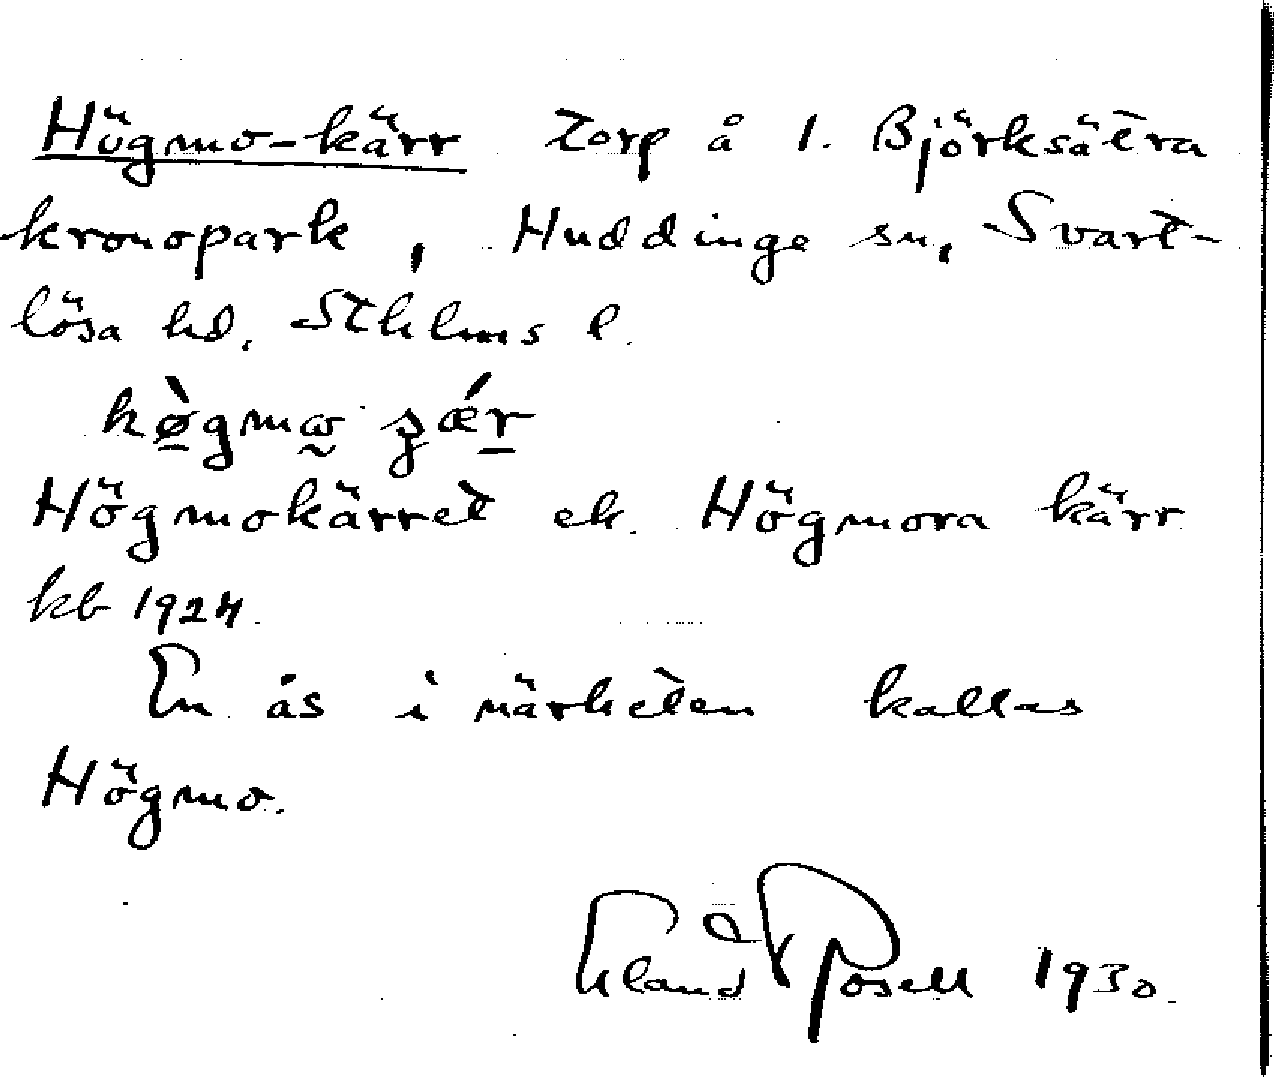 Högmo-kärr torp å l. Björksätra
kronopark, Huddinge sn, Svart-
lösa hd. Sthlms l.
Högmokärret ek. Högmora kärr
kb 1924.
En ås i närheten kallas
Högmo.
Erland Rosell 1930.